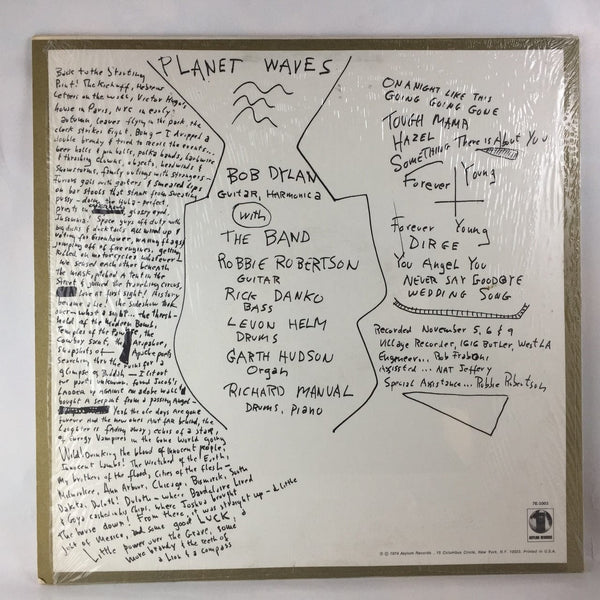 PLANET WAVES
Back to the Starting
Point! The Kickoff, Hebrew
Letters on the wall, Victor Hugo's
house in Paris, NYC in early
autumn, leaves flying in the park, the
clock strikes Eight, Bong - I dropped a
double brandy & tried to recall the events...
beer halls & pin balls, polka bands, barbwire
& thrashing clowns, objects, headwinds &
snowstorms, family outings with strangers -
Furious gals with garters & smeared Lips
on bar stools that stank from sweating
pussy - doing the Hula - perfect,
priests in glossy eyed,
Insomnia! Space guys off duty with
big dicks & ducktails all wired up &
voting for Eisenhower, waving flags &
jumping off of fire engines, getting
killed on motorcycles whatever -
We sensed each other beneath
the mask, pitched a tent in the
Street & joined the traveling circus,
Love at first sight! History
became a Lie! the sideshow took
over - what a sight... the thresh-
hold of the Modern Bomb,
Temples of the the
Cowboy Saint, the Airpshire,
snapshots of Apache poets
Searching thru the ruins for a
glimpse of Buddah - I lit out
for parts unknown, found Jacob's
Ladder up against an adobe wall &
bought a serpent from a passing Angel -
Yeah the ole days are gone
forever and the new ones Aint far behind, the
Laughter is fading away, echos of a star,
of Energy Vampires in the Gone World going
Wild! Drinking the blood of innocent people,
Innocent Lambs! The Wretched of the Earth,
my brothers of the flood, Cities of the flesh -
Milwaukee, Ann Arbor, Chicago, Bismarck, South
Dakota, Duluth! Duluth - where Baudelaire Lived
& Goya cashed in his Chips, where Joshua brought
The house down! From there, it was straight up - a little
jolt of Mexico, and some good LUCK, a
Little power over the Grave, some
more brandy & the teeth of
a Lion & a compass
BOB DYLAN
GUITAR, HARMONICA
with
THE BAND
ROBBIE ROBERTSON
GUITAR
RICK DANKO
BASS
LEVON HELM
DRUMS
GARTH HUDSON
Organ
RICHARD MANUAL
DRUMS, PIANO
ON A NIGHT LIKE THIS
GOING GOING GONE
TOUGH MAMA
HAZEL
SOMETHING There is About You
Forever Young
Forever Young
DIRGE
You Angel You
NEVER SAY GOODBYE
WEDDING SONG
Recorded November 5, 6 & 9
Village Recorder, 1616 BUTLER, West LA
Engineer... Rob Fraboni
Assisted... NAT Jeffery
Special Assistance... Robbie Robertson
7E-1003
ASYLUM RECORDS
© ℗ 1974 Asylum Records, 15 Columbus Circle, New York, N.Y. 10023. Printed in U.S.A.